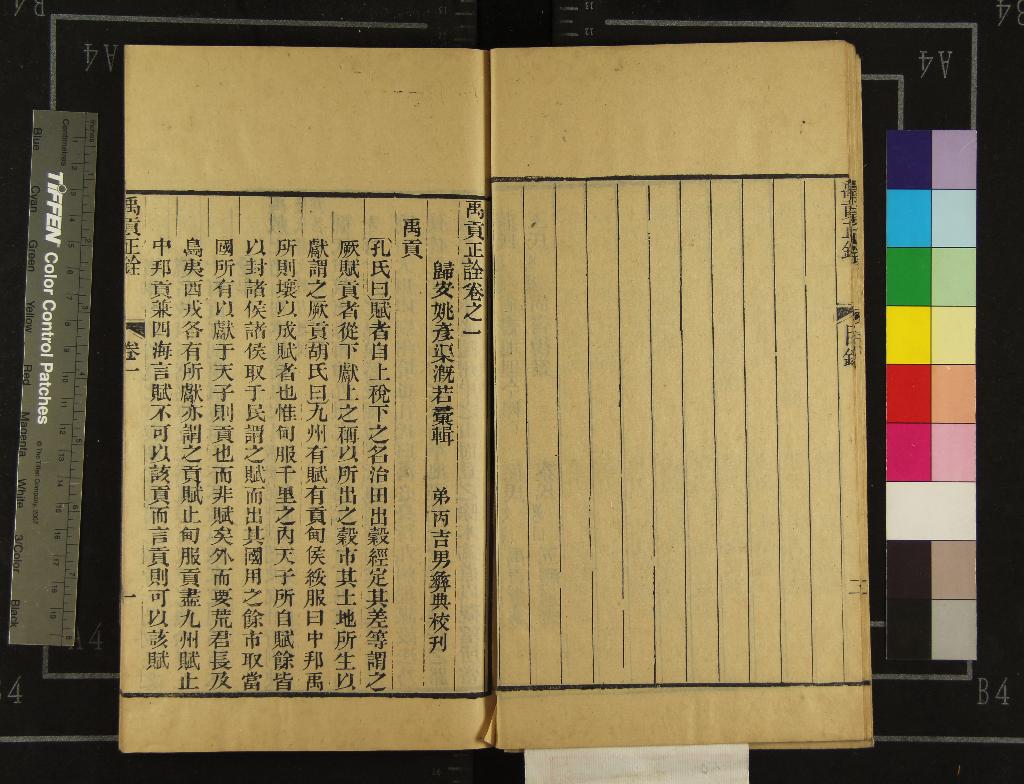 禹貢正詮卷之一
歸安姚彥渠溉若彙輯　弟丙吉男彝典校刊
禹貢
孔氏曰賦者自上稅下之名治田出穀經定其差等謂之
厥賦貢者從下獻上之稱以所出之穀市其土地所生以
獻謂之厥貢胡氏曰九州有賦有貢甸侯綏服曰中邦禹
所則壤以成賦者也惟甸服千里之內天子所自賦餘皆
以封諸侯諸侯取于民謂之賦而出其國用之餘市取當
國所有以獻于天子則貢也而非賦矣外而要荒君長及
島夷西戎各有所獻亦謂之貢賦止甸服貢盡九州賦止
中邦貢兼四海言賦不可以該貢而言貢則可以該賦
禹貢正詮
卷一
一
目錄
二
TIFFEN Color Control Patches
© The Tiffen Company, 2007
Centimetres
Inches
Blue
Cyan
Green
Yellow
Red
Magenta
White
3/Color
Black
A4
A4
A4
B4
B4
B4